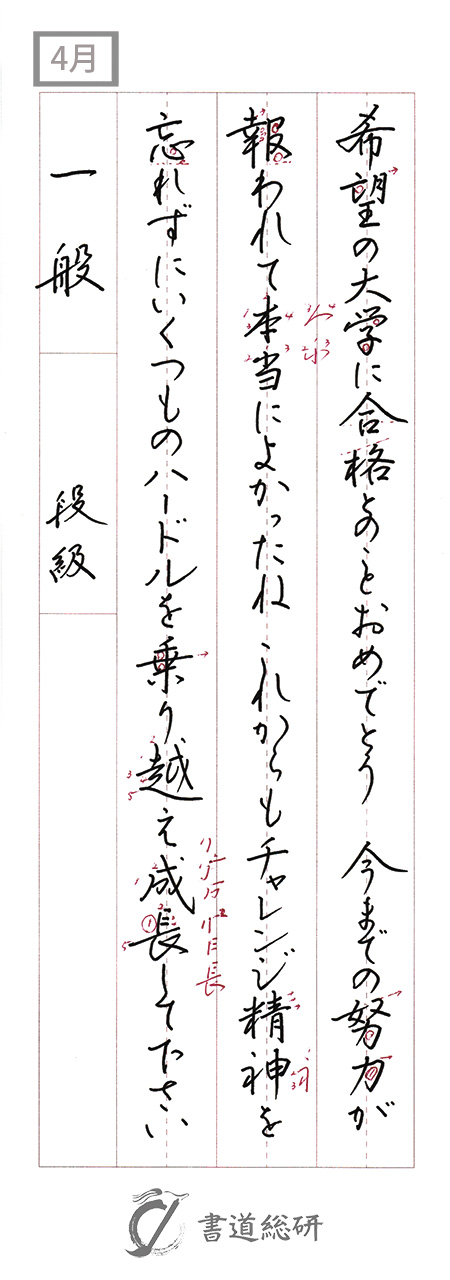 4月
希望の大学に合格とのことおめでとう 今までの努力が
報われて本当によかったね これからもチャレンジ精神を
忘れずにいくつものハードルを乗り越え成長して下さい
一般
段級
書道総研